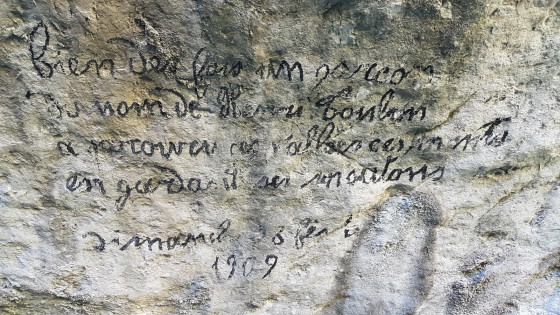 bien des fois un garçon
du nom de Henri Toulon
a parcouru ces vallées ces monts
en gardant ses moutons
dimanch
1909